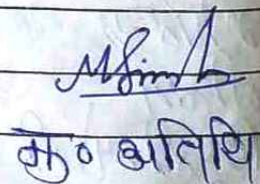 MSingh
मु० अतिथि